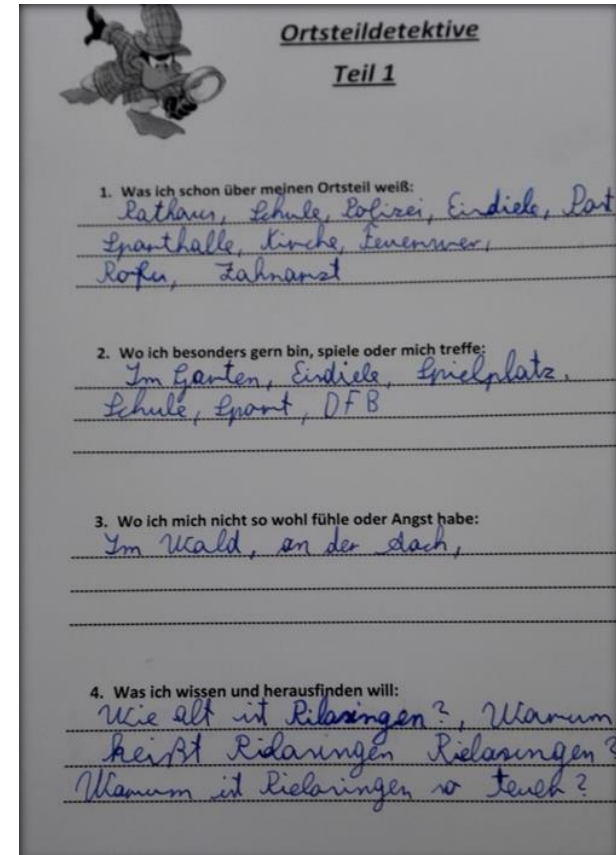 Ortsteildetektive
Teil 1
1. Was ich schon über meinen Ortsteil weiß:
Rathaus, Schule, Polizei, Eisdiele, Post
Sporthalle, Kirche, Feuerwer,
Zahnarzt
2. Wo ich besonders gern bin, spiele oder mich treffe:
Im Garten, Eisdiele, Spielplatz,
Schule, Sport, DFB
3. Wo ich mich nicht so wohl fühle oder Angst habe:
Im Wald, an der Aach,
4. Was ich wissen und herausfinden will:
Wie alt ist Rilasingen?, Warum
heißt Rielasingen?
Warum ist Rielasingen so